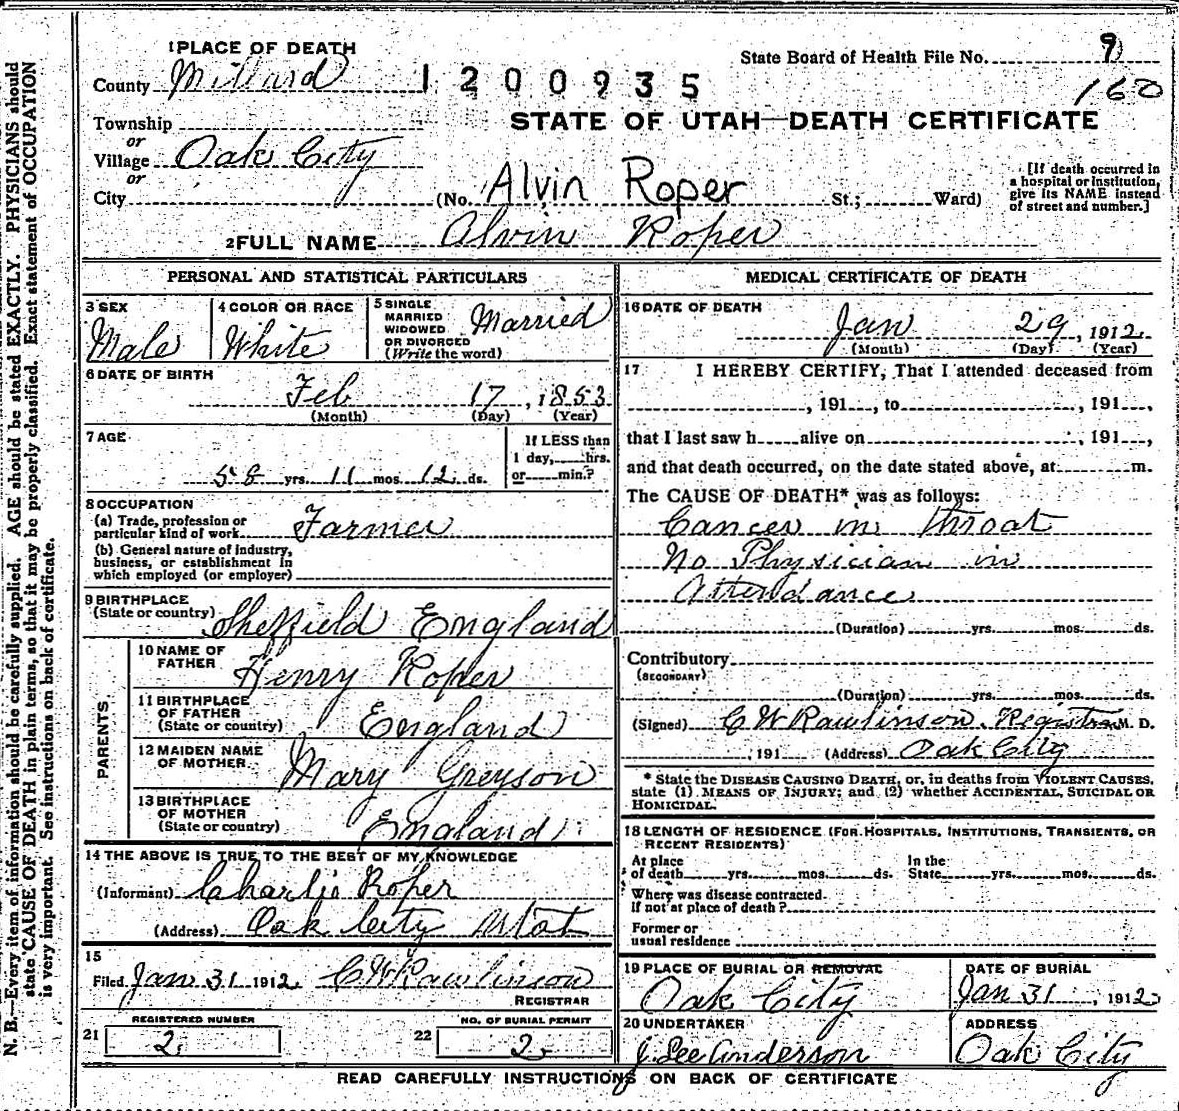 1 PLACE OF DEATH
County Millard
1200935
State Board of Health File No. 9
160
STATE OF UTAH—DEATH CERTIFICATE
Township
or
Village Oak City
or
City
(No. Alvin Roper St.; Ward)
[If death occurred in
a hospital or institution,
give its NAME instead
of street and number.]
2 FULL NAME Alvin Roper
PERSONAL AND STATISTICAL PARTICULARS
3 SEX
Male
4 COLOR OR RACE
White
5 SINGLE
MARRIED
WIDOWED
OR DIVORCED
(Write the word)
Married
6 DATE OF BIRTH
Feb 17, 1853
(Month) (Day) (Year)
7 AGE
58 yrs. 11 mos. 12 ds.
If LESS than
1 day, hrs.
or min.?
8 OCCUPATION
(a) Trade, profession or
particular kind of work Farmer
(b) General nature of industry,
business, or establishment in
which employed (or employer)
9 BIRTHPLACE
(State or country) Sheffield England
PARENTS
10 NAME OF
FATHER Henry Roper
11 BIRTHPLACE
OF FATHER
(State or country) England
12 MAIDEN NAME
OF MOTHER Mary Greyson
13 BIRTHPLACE
OF MOTHER
(State or country) England
14 THE ABOVE IS TRUE TO THE BEST OF MY KNOWLEDGE
(Informant) Charlie Roper
(Address) Oak City Utat
15
Filed Jan 31 1912 C W Rawlinson
REGISTRAR
REGISTERED NUMBER
21 2
NO. OF BURIAL PERMIT
22 2
MEDICAL CERTIFICATE OF DEATH
16 DATE OF DEATH
Jan 29, 1912
(Month) (Day) (Year)
17 I HEREBY CERTIFY, That I attended deceased from
, 191 , to , 191 ,
that I last saw h alive on , 191 ,
and that death occurred, on the date stated above, at m.
The CAUSE OF DEATH* was as follows:
Cancer in throat
No Physician in
Attendance
(Duration) yrs. mos. ds.
Contributory
(SECONDARY)
(Duration) yrs. mos. ds.
(Signed) C W Rawlinson. Registrar M. D.
, 191 (Address) Oak City
* State the DISEASE CAUSING DEATH, or, in deaths from VIOLENT CAUSES,
state (1) MEANS OF INJURY; and (2) whether ACCIDENTAL, SUICIDAL OR
HOMICIDAL.
18 LENGTH OF RESIDENCE (FOR HOSPITALS, INSTITUTIONS, TRANSIENTS, OR
RECENT RESIDENTS)
At place
of death yrs. mos. ds.
In the
State yrs. mos. ds.
Where was disease contracted
If not at place of death?
Former or
usual residence
19 PLACE OF BURIAL OR REMOVAL
Oak City
DATE OF BURIAL
Jan 31, 1912
20 UNDERTAKER
J. Lee Anderson
ADDRESS
Oak City
READ CAREFULLY INSTRUCTIONS ON BACK OF CERTIFICATE
N. B.—Every item of information should be carefully supplied. AGE should be stated EXACTLY. PHYSICIANS should
state CAUSE OF DEATH in plain terms, so that it may be properly classified. Exact statement of OCCUPATION
is very important. See instructions on back of certificate.